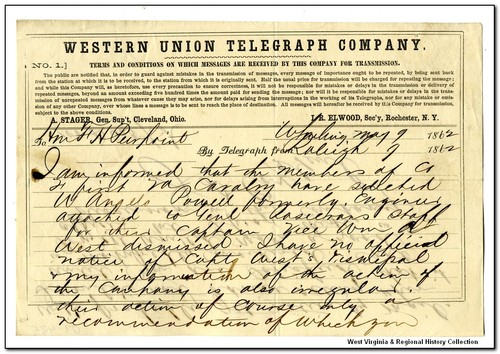 WESTERN UNION TELEGRAPH COMPANY.
No. 1.]
TERMS AND CONDITIONS ON WHICH MESSAGES ARE RECEIVED BY THIS COMPANY FOR TRANSMISSION.
The public are notified, that, in order to guard against mistakes in the transmission of messages, every message of importance ought to be repeated, by being sent back
from the station at which it is to be received, to the station from which it is originally sent. Half the usual price for transmission will be charged for repeating the message;
and while this Company will, as heretofore, use every precaution to ensure correctness, it will not be responsible for mistakes or delays in the transmission or delivery of
repeated messages, beyond an amount exceeding five hundred times the amount paid for sending the message; nor will it be responsible for mistakes or delays in the trans-
mission of unrepeated messages from whatever cause they may arise, nor for delays arising from interruptions in the working of its Telegraphs, nor for any mistake or omis-
sion of any other Company, over whose lines a message is to be sent to reach the place of destination. All messages will hereafter be received by this Company for transmission,
subject to the above conditions.
A. STAGER, Gen. Sup't, Cleveland, Ohio.
I. R. ELWOOD, Sec'y, Rochester, N. Y.
Wheeling May 9 1862
To Hon F H Peirpoint
By Telegraph from Raleigh 9 1862
I am informed that the members of Co
F first Va Cavalry have selected
W Angelo Powell formerly Engineer
attached to Genl Rosecrans staff
for their Captain vice Wm
West dismissed I have no official
notice of Capt West's dismissal
& my information of the action of
the Company is also irregular
their action of course only a
recommendation of which you
West Virginia & Regional History Collection